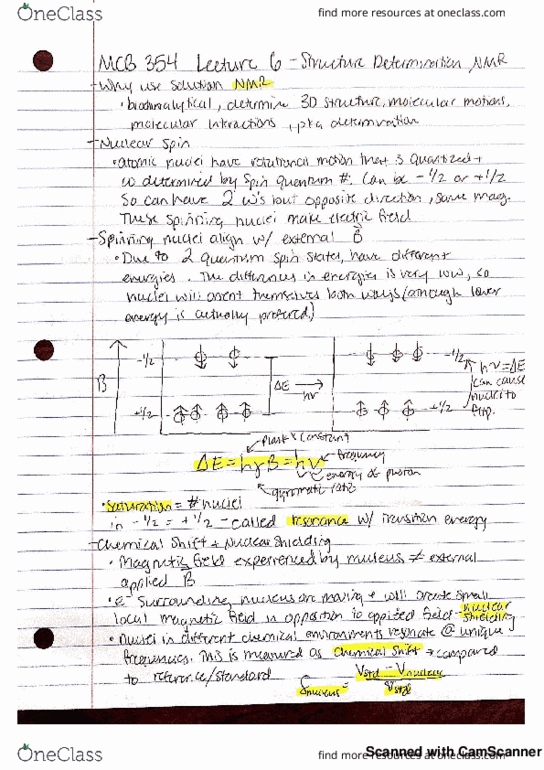 OneClass
find more resources at oneclass.com
MCB 354 Lecture 6 - Structure Determination, NMR
- Why use solution NMR
• bioanalytical, determine 3D structure, molecular motions,
molecular interactions, pka determination
- Nuclear Spin
• atomic nuclei have rotational motion that is quantized +
ω determined by spin quantum #. Can be -1/2 or +1/2
So can have 2 ω's but opposite direction, same mag.
These spinning nuclei make electric field
- Spinning nuclei align w/ external B
• Due to 2 quantum spin states, have different
energies. The differences in energies is very low, so
nuclei will orient themselves both ways (although lower
energy is actually preferred)
B
-1/2
+1/2
ΔE
hν
-1/2
+1/2
hν=ΔE
can cause
nuclei to
flip.
Plank's constant
ΔE = hγB = hν
frequency
energy of photon
gyromatic ratio
• Saturation = # nuclei
in -1/2 = +1/2 - called resonance w/ transition energy
- Chemical Shift + Nuclear Shielding
• Magnetic field experienced by nucleus ≠ external
applied B
• e- surrounding nucleus are moving + will create small
local magnetic field in opposition to applied field - nuclear
shielding
• Nuclei in different chemical environments resonate @ unique
frequencies. This is measured as chemical shift → compared
to reference/standard
δnucleus = νstd - νnucleus
νstd
Scanned with CamScanner
OneClass
find more resources at oneclass.com